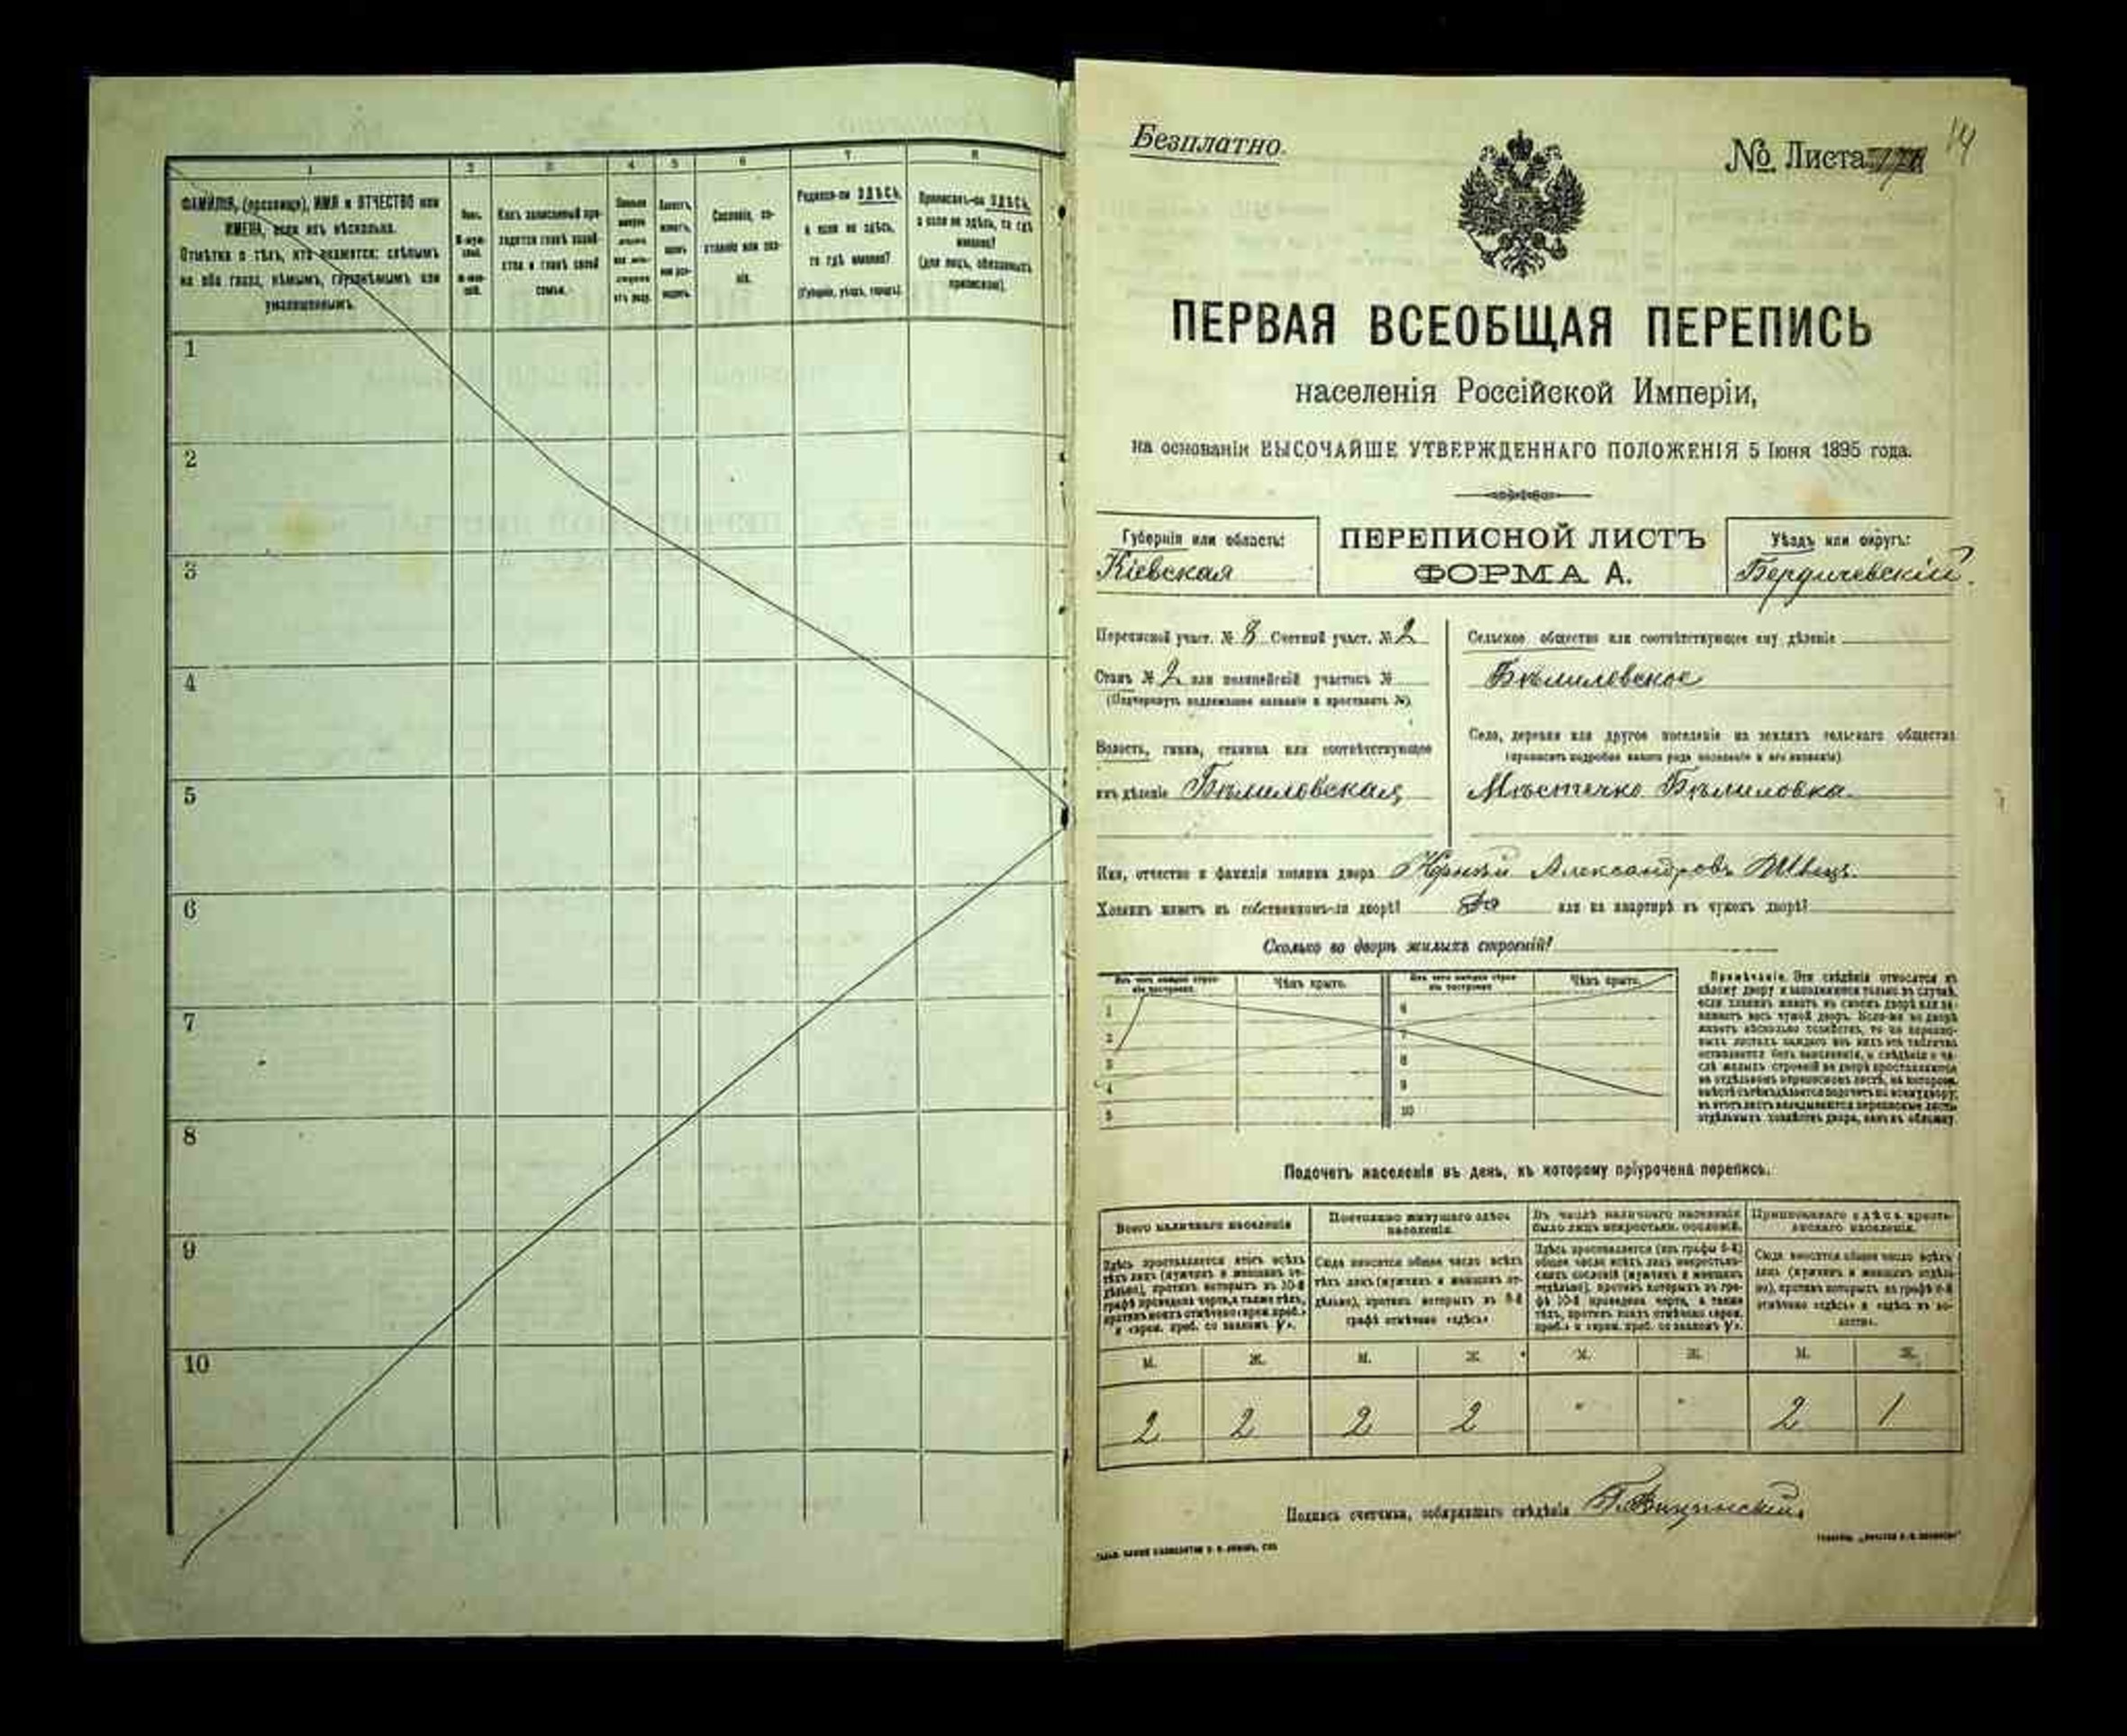 1 2 3 4 5 6 7 8
ФАМИЛІЯ, (прозвище), ИМЯ и ОТЧЕСТВО или
ИМЕНА, если ихъ нѣсколько.
Отмѣтка о тѣхъ, кто окажется: слѣпымъ
на оба глаза, нѣмымъ, глухонѣмымъ или
умалишеннымъ.
Полъ.
М-муж-
ской.
Ж-жен-
скій.
Какъ записанный при-
ходится главѣ хозяй-
ства и главѣ своей
семьи.
Сословіе, со-
стояніе или зва-
ніе.
Родился-ли ЗДѢСЬ,
а если не здѣсь,
то гдѣ именно?
(Губернія, уѣздъ, городъ).
Приписанъ-ли ЗДѢСЬ,
а если не здѣсь, то гдѣ
именно?
(для лицъ, обязанныхъ
припискою).
1
2
3
4
5
6
7
8
9
10
Безплатно.
№ Листа
14
ПЕРВАЯ ВСЕОБЩАЯ ПЕРЕПИСЬ
населенія Россійской Имперіи,
на основаніи ВЫСОЧАЙШЕ УТВЕРЖДЕННАГО ПОЛОЖЕНІЯ 5 Іюня 1895 года.
Губернія или область:
Кіевская
ПЕРЕПИСНОЙ ЛИСТЪ
ФОРМА А.
Уѣздъ или округъ:
Бердичевскій.
Переписной участ. № 8 Счетный участ. № 2
Станъ № 2 или полицейскій участокъ №
(Подчеркнуть надлежащее названіе и проставить №).
Волость, гмина, станица или соотвѣтствующее
имъ дѣленіе Бѣлиловская
Сельское общество или соотвѣтствующее ему дѣленіе
Бѣлиловское
Село, деревня или другое поселеніе на земляхъ сельскаго общества
(прописать подробно какого рода поселеніе и его названіе)
Мѣстечко Бѣлиловка.
Имя, отчество и фамилія хозяина двора Корній Александровъ Швецъ.
Хозяинъ живетъ въ собственномъ-ли дворѣ? Да или на квартирѣ въ чужомъ дворѣ?
Сколько во дворѣ жилыхъ строеній?
Изъ чего каждое строе-
ніе построено.
Чѣмъ крыто.
Изъ чего каждое строе-
ніе построено
Чѣмъ крыто.
1 6
2 7
3 8
4 9
5 10
Примѣчаніе. Эти свѣдѣнія относятся къ
цѣлому двору и заполняются только въ случаѣ,
если хозяинъ живетъ въ своемъ дворѣ или за-
нимаетъ весь чужой дворъ. Если-же во дворѣ
живетъ нѣсколько хозяйствъ, то на перепис-
ныхъ листахъ каждаго изъ нихъ эта табличка
оставляется безъ заполненія, а свѣдѣнія о чи-
слѣ жилыхъ строеній во дворѣ проставляются
на отдѣльномъ переписномъ листѣ, на которомъ
вмѣстѣ съ тѣмъ дѣлается подсчетъ по всему двору;
въ этотъ листъ вкладываются переписные листы
отдѣльныхъ хозяйствъ двора, какъ въ обложку.
Подсчетъ населенія въ день, къ которому пріурочена перепись.
Всего наличнаго населенія
Здѣсь проставляется итогъ всѣхъ
тѣхъ лицъ (мужчинъ и женщинъ от-
дѣльно), противъ которыхъ въ 10-й
графѣ проведена черта, а также тѣхъ,
противъ коихъ отмѣчено «врем. проб.»
и «врем. преб. со знакомъ V».
Постоянно живущаго здѣсь
населенія.
Сюда вносится общее число всѣхъ
тѣхъ лицъ (мужчинъ и женщинъ от-
дѣльно), противъ которыхъ въ 9-й
графѣ отмѣчено «здѣсь»
Въ числѣ наличнаго населенія
было лицъ некрестьян. сословій.
Здѣсь проставляется (изъ графы 6-й)
общее число всѣхъ лицъ некрестьян-
скихъ сословій (мужчинъ и женщинъ
отдѣльно), противъ которыхъ въ гра-
фѣ 10-й проведена черта, а также
тѣхъ, противъ коихъ отмѣчено «врем.
преб.» и «врем. преб. со знакомъ V».
Приписаннаго здѣсь кресть-
янскаго населенія.
Сюда вносится общее число всѣхъ
лицъ (мужчинъ и женщинъ отдѣль-
но), противъ которыхъ въ графѣ 8-й
отмѣчено «здѣсь» и «здѣсь въ во-
лости».
М. Ж. М. Ж. М. Ж. М. Ж.
2 2 2 2 " " 2 1
Подпись счетчика, собиравшаго свѣдѣнія